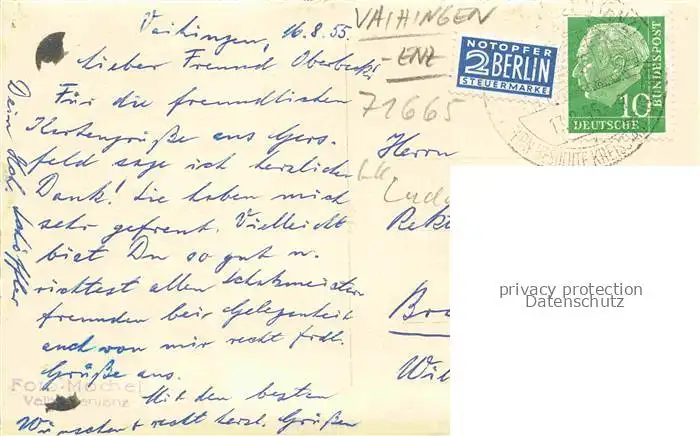 Vaihingen, 16.8.55
Lieber Freund Oberbeck!
Für die freundlichen
Kartengrüße aus Gers-
feld sage ich herzlichen
Dank! Sie haben mich
sehr gefreut. Vielleicht
bist Du so gut u.
richtest allen
freunden bei Gelegenheit
auch von mir recht frdl.
Grüße aus.
Mit den besten
Wünschen u. recht herzl. Grüßen
Dein
VAIHINGEN
- ENZ
71665
LK.
NOTOPFER
2 BERLIN
STEUERMARKE
10
DEUTSCHE
BUNDESPOST
Herrn
Rekt
Wil
privacy protection
Datenschutz
Foto-Mochel